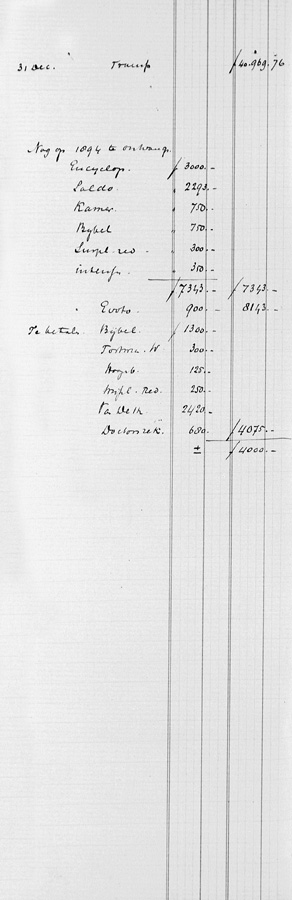 31 Dec. Transp ƒ 40.969.76
Nog op 1894 te ontvang.
Encyclop. ƒ 3000.-
Saldo. " 2293.-
Kamer. " 750.-
Bybel " 750.-
Suppl. red " 300.-
" 350.-
ƒ 7343.- ƒ 7343.-
" 900.- 8143.-
Te betal. Bybel. ƒ 1300.-
300.-
125.-
Red. 250.-
2420.-
Doctorsrek. 680.- ƒ 4075.-
± ƒ 4000.-